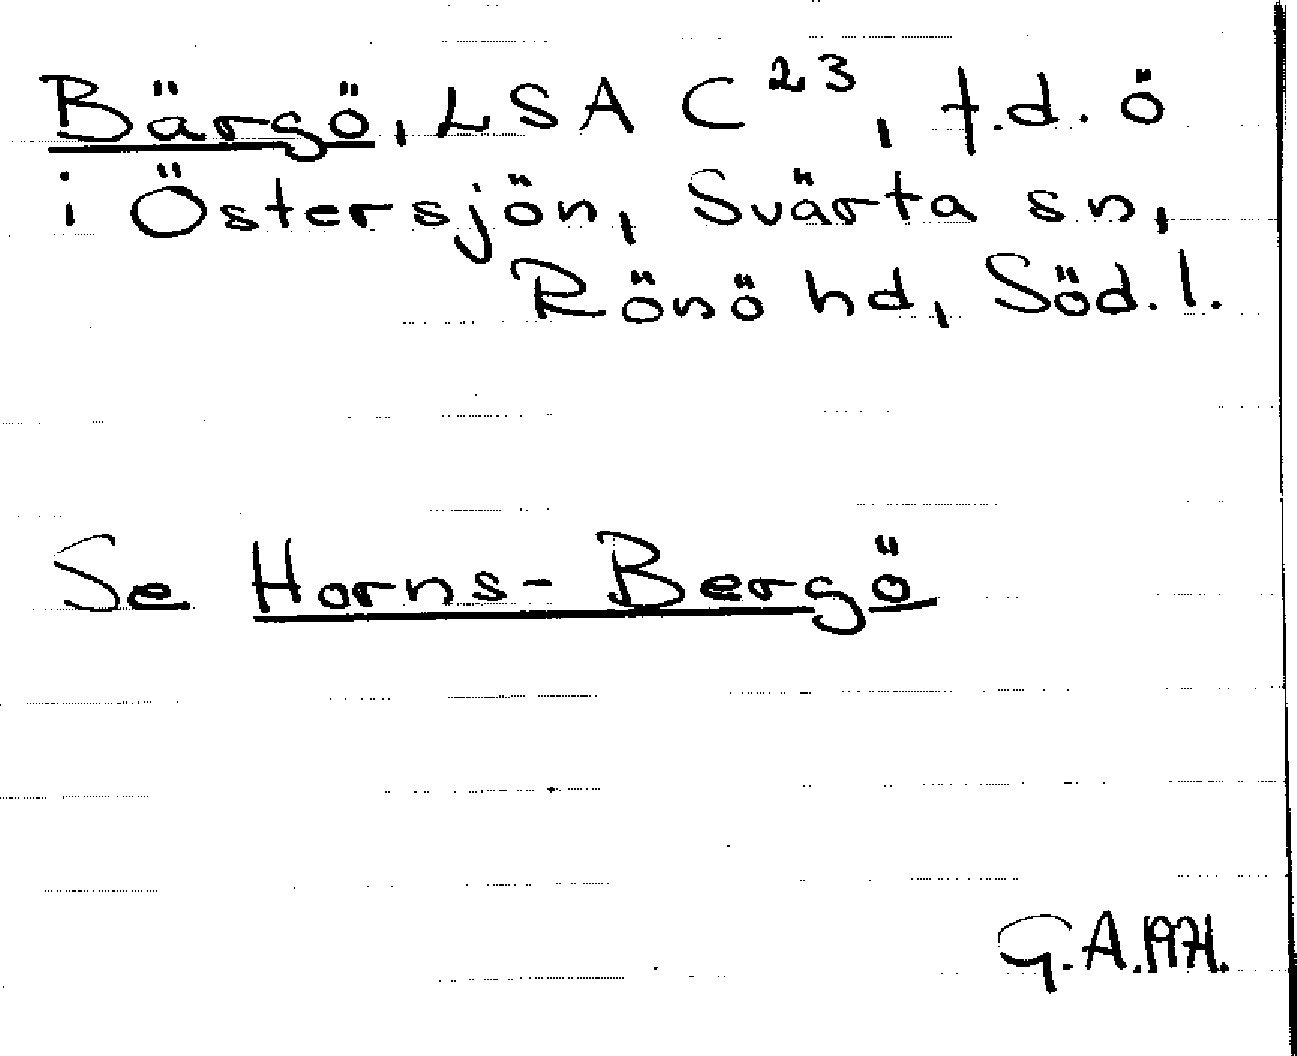 Bärgö, LSA C²³, f.d. ö
i Östersjön, Svärta sn,
Rönö hd, Söd. l.
Se Horns-Bergö
G.A. 1971.